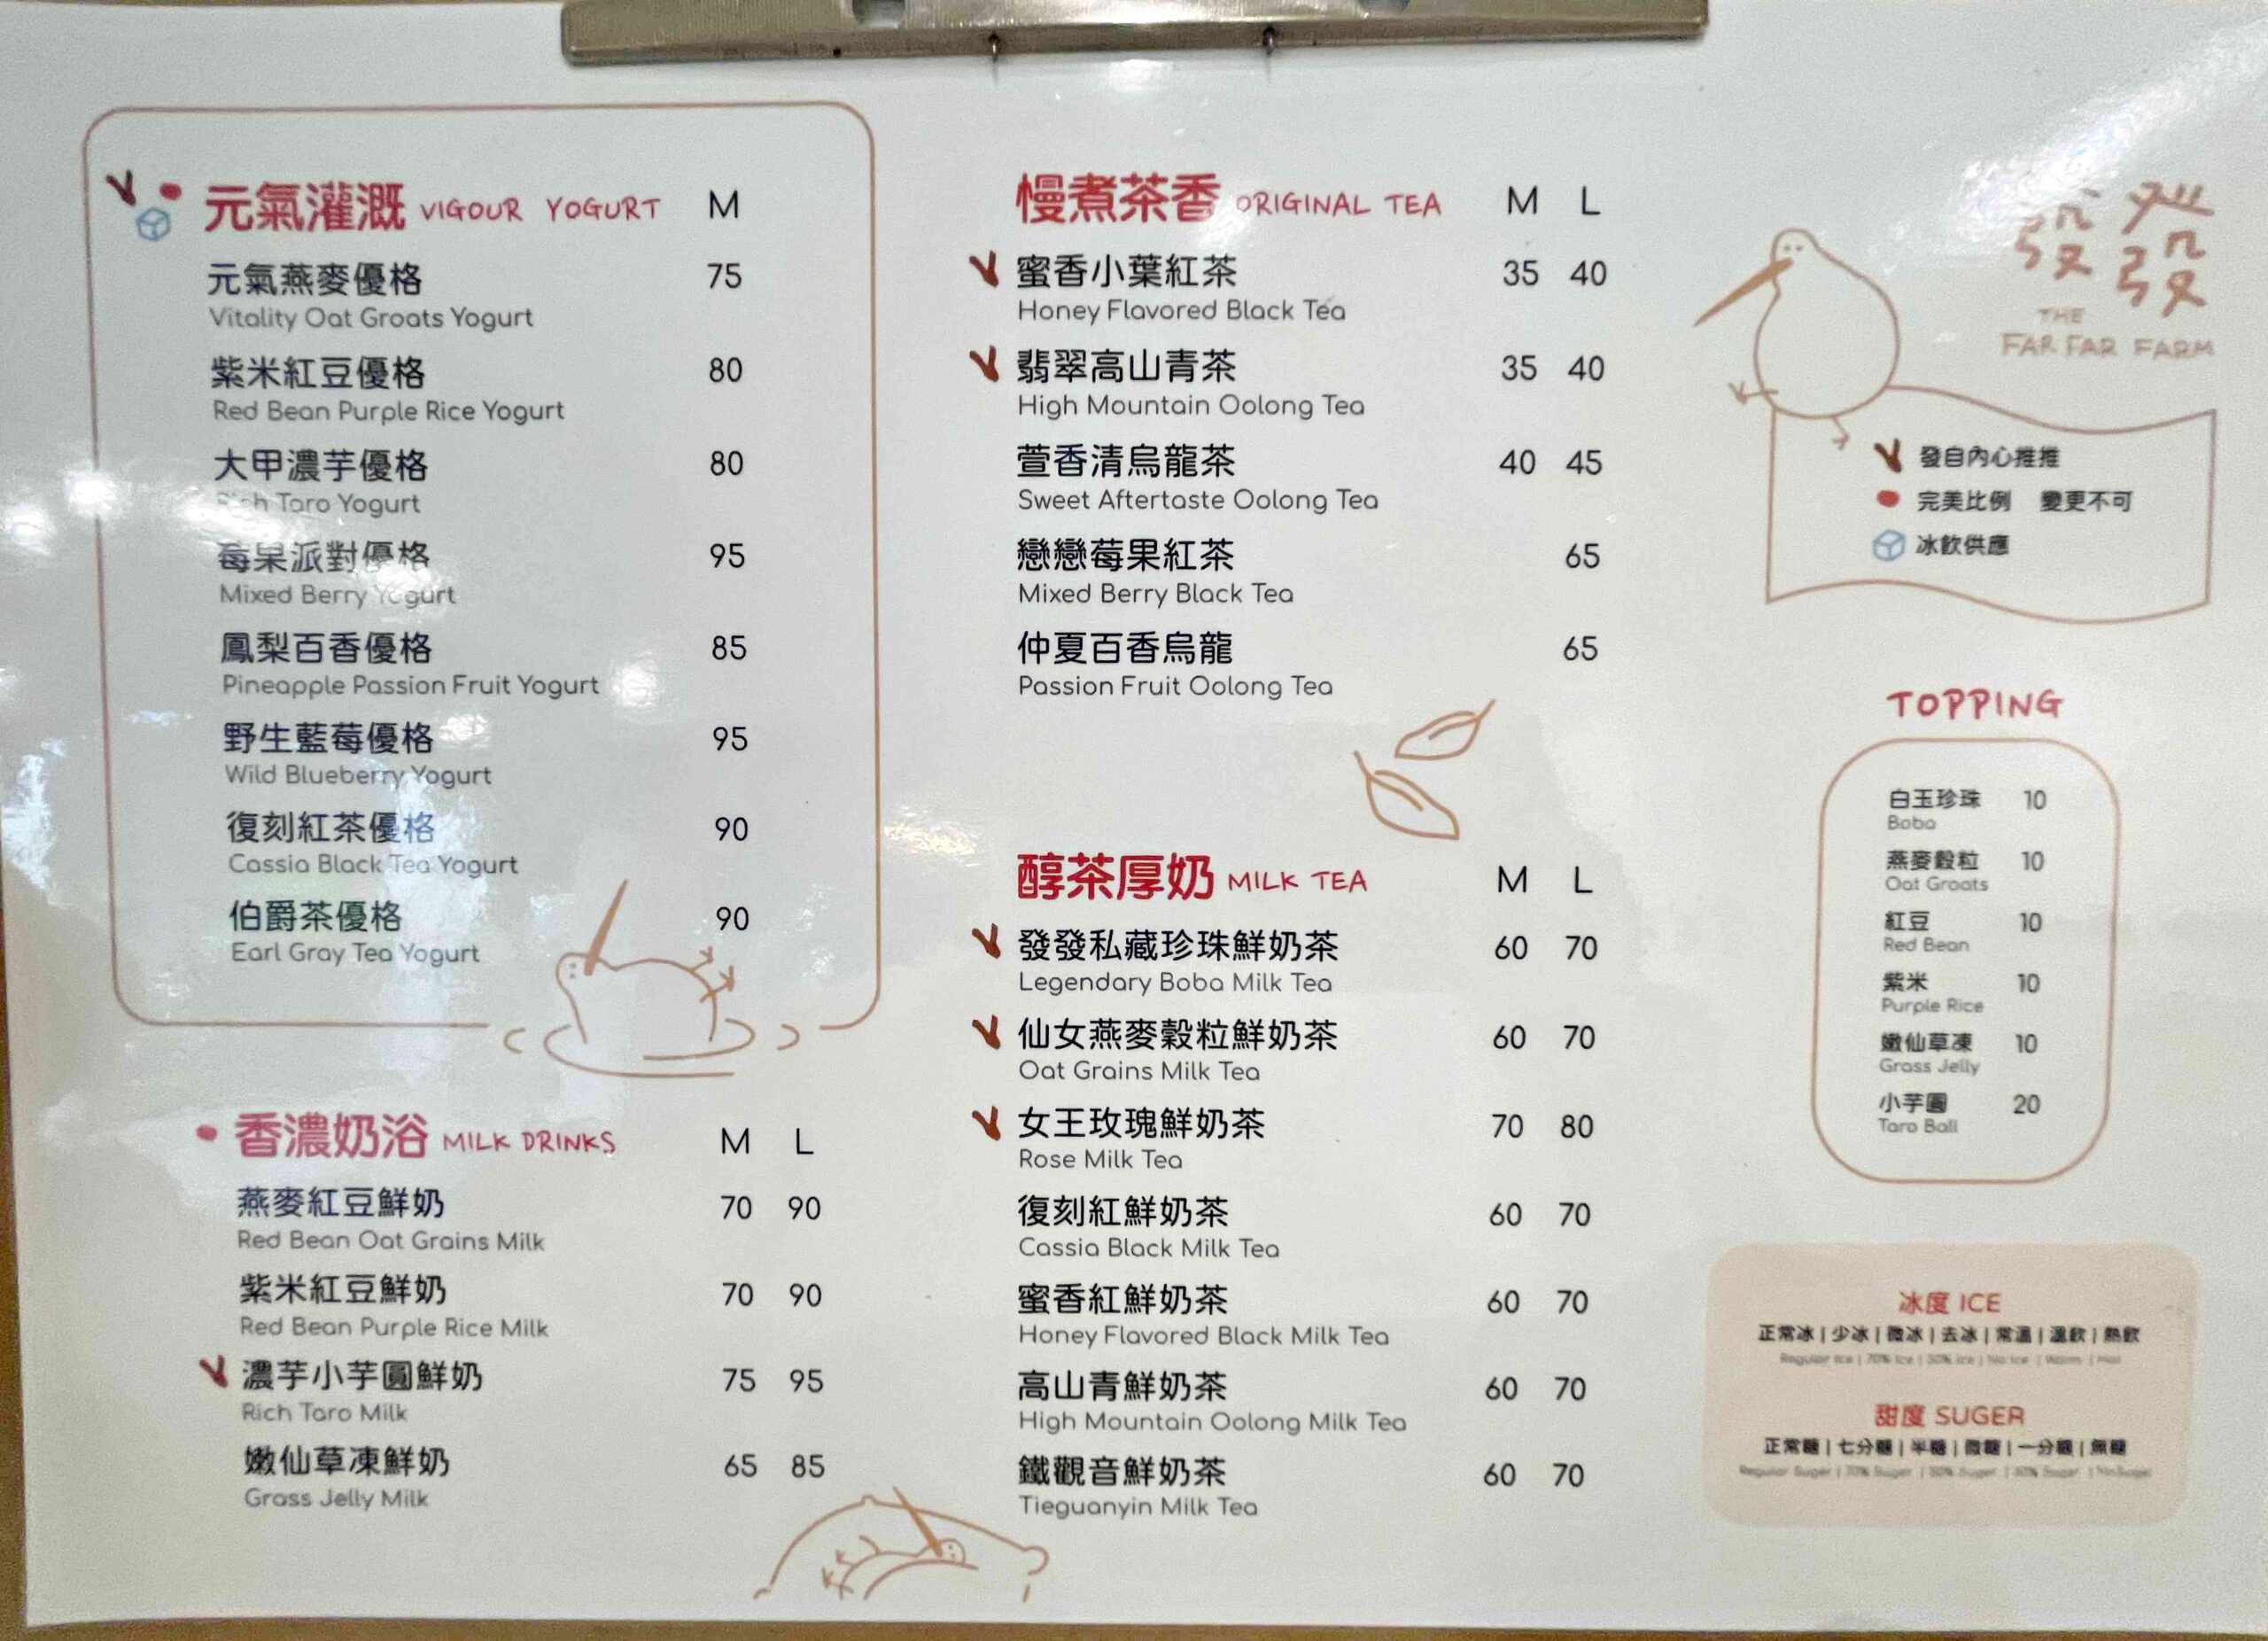 元氣灌溉 VIGOUR YOGURT M
元氣燕麥優格 75
Vitality Oat Groats Yogurt
紫米紅豆優格 80
Red Bean Purple Rice Yogurt
大甲濃芋優格 80
Rich Taro Yogurt
莓果派對優格 95
Mixed Berry Yogurt
鳳梨百香優格 85
Pineapple Passion Fruit Yogurt
野生藍莓優格 95
Wild Blueberry Yogurt
復刻紅茶優格 90
Cassia Black Tea Yogurt
伯爵茶優格 90
Earl Gray Tea Yogurt
香濃奶浴 MILK DRINKS M L
燕麥紅豆鮮奶 70 90
Red Bean Oat Grains Milk
紫米紅豆鮮奶 70 90
Red Bean Purple Rice Milk
濃芋小芋圓鮮奶 75 95
Rich Taro Milk
嫩仙草凍鮮奶 65 85
Grass Jelly Milk
慢煮茶香 ORIGINAL TEA M L
蜜香小葉紅茶 35 40
Honey Flavored Black Tea
翡翠高山青茶 35 40
High Mountain Oolong Tea
萱香清烏龍茶 40 45
Sweet Aftertaste Oolong Tea
戀戀莓果紅茶 65
Mixed Berry Black Tea
仲夏百香烏龍 65
Passion Fruit Oolong Tea
醇茶厚奶 MILK TEA M L
發發私藏珍珠鮮奶茶 60 70
Legendary Boba Milk Tea
仙女燕麥穀粒鮮奶茶 60 70
Oat Grains Milk Tea
女王玫瑰鮮奶茶 70 80
Rose Milk Tea
復刻紅鮮奶茶 60 70
Cassia Black Milk Tea
蜜香紅鮮奶茶 60 70
Honey Flavored Black Milk Tea
高山青鮮奶茶 60 70
High Mountain Oolong Milk Tea
鐵觀音鮮奶茶 60 70
Tieguanyin Milk Tea
發發
THE
FAR FAR FARM
發自內心推推
完美比例 變更不可
冰飲供應
TOPPING
白玉珍珠 10
Boba
燕麥穀粒 10
Oat Groats
紅豆 10
Red Bean
紫米 10
Purple Rice
嫩仙草凍 10
Grass Jelly
小芋圓 20
Taro Ball
冰度 ICE
正常冰 | 少冰 | 微冰 | 去冰 | 常溫 | 溫飲 | 熱飲
Regular Ice | 70% Ice | 30% Ice | No Ice | Warm | Hot
甜度 SUGER
正常糖 | 七分糖 | 半糖 | 微糖 | 一分糖 | 無糖
Regular Suger | 70% Suger | 50% Suger | 30% Suger | No Suger